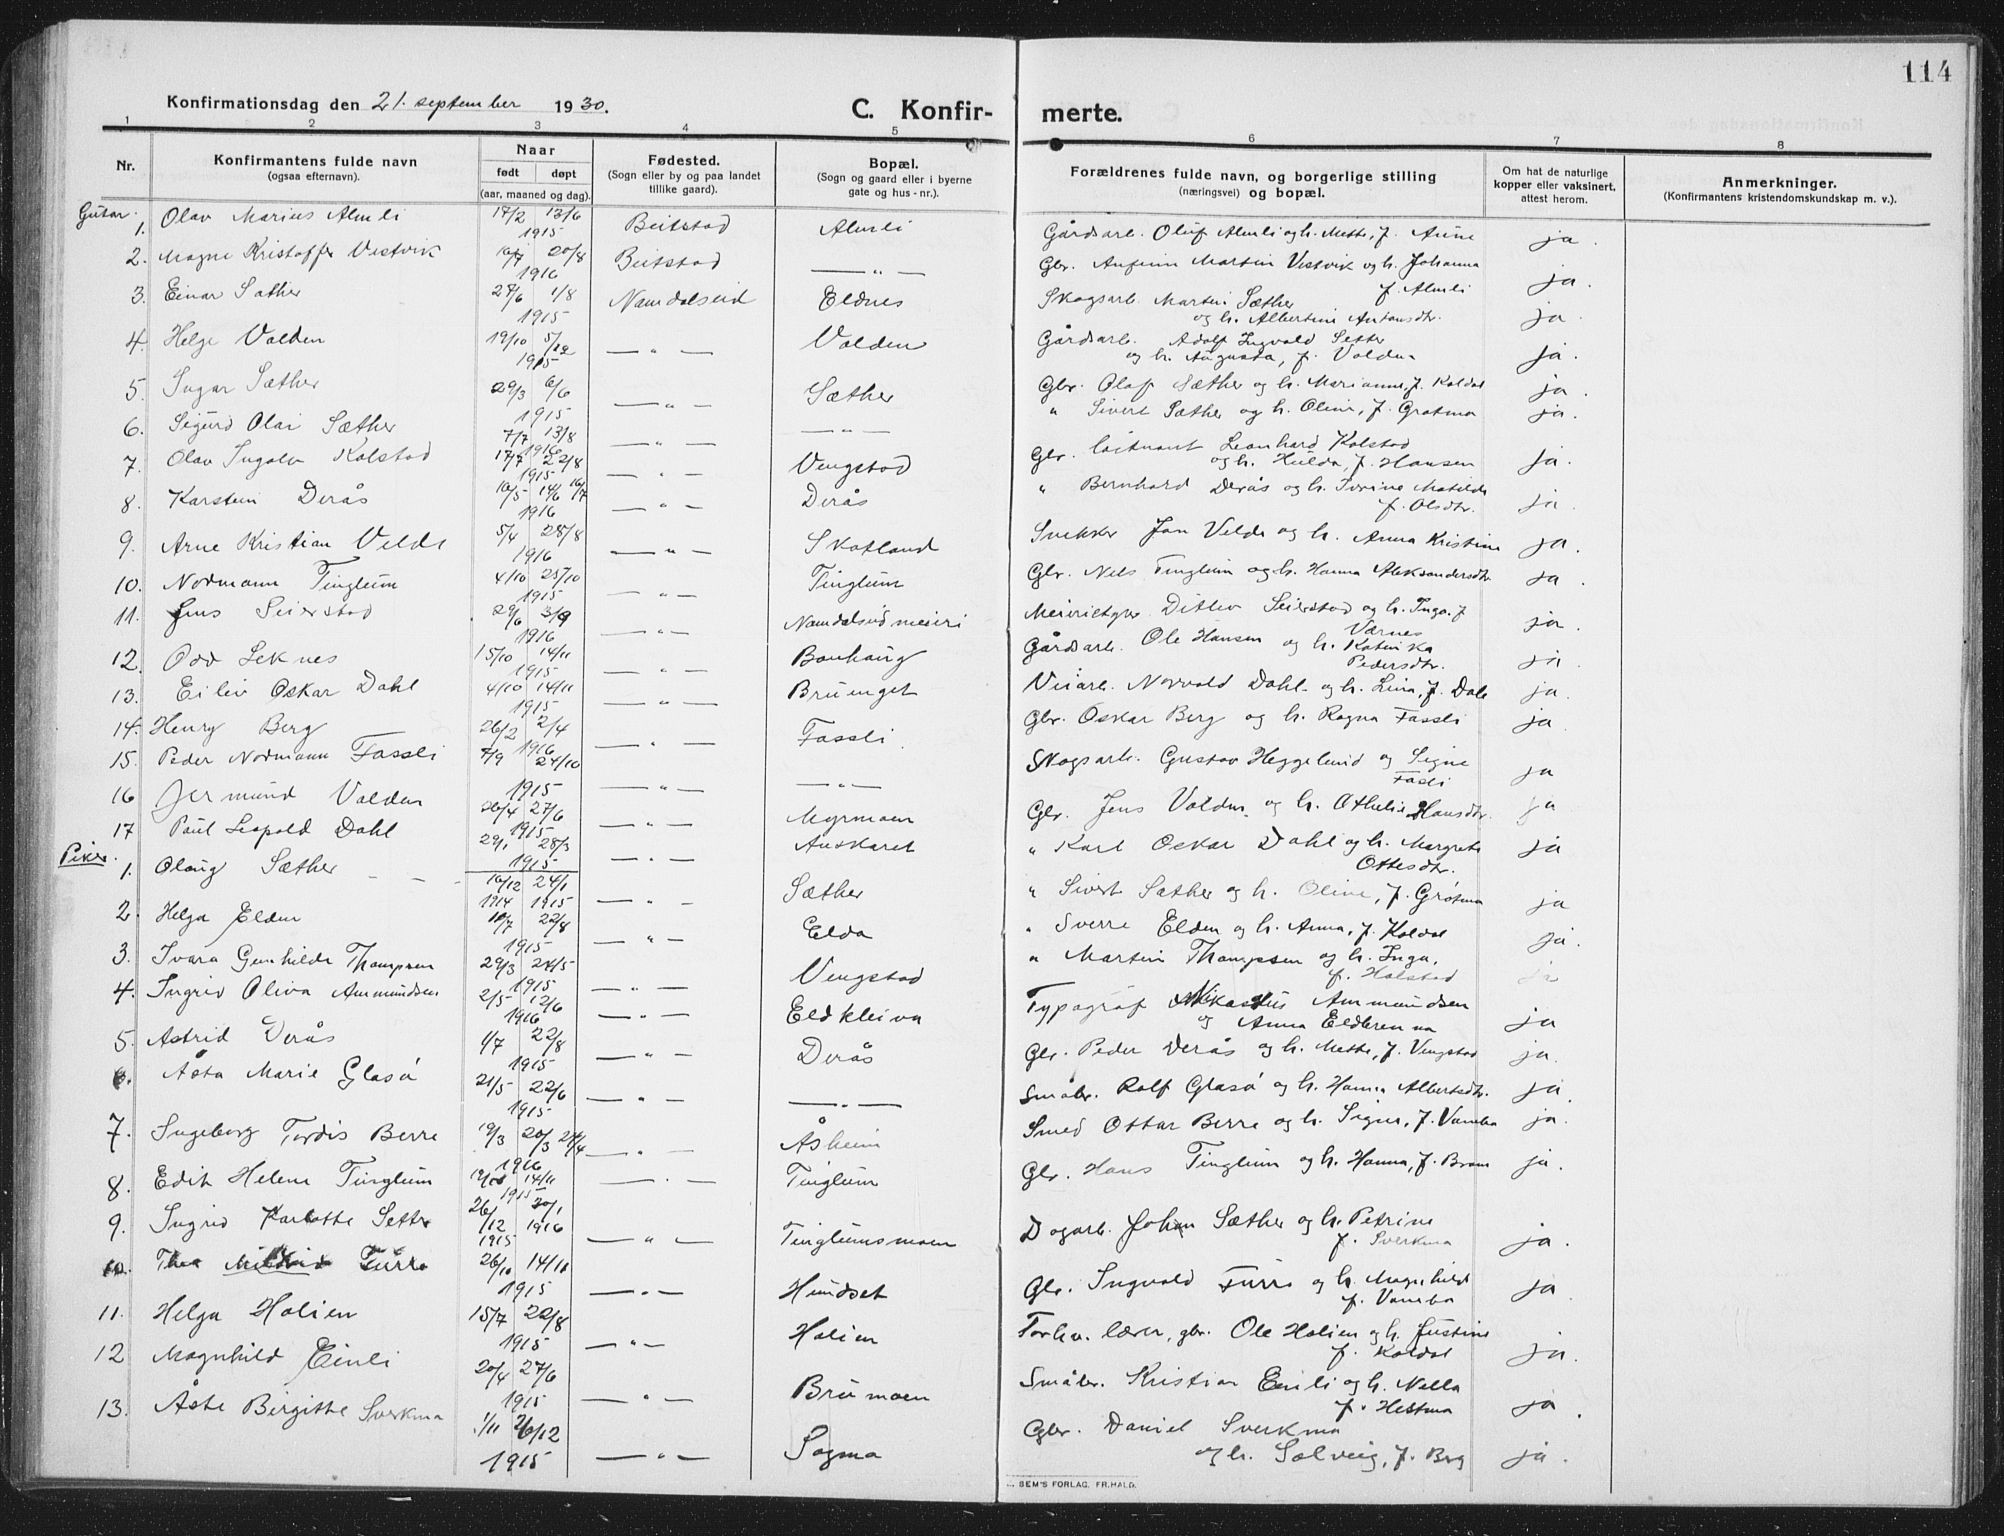 114
Konfirmationsdag den 21. september 1930.
C. Konfir- merte.
1 2 3 4 5 6 7 8
Nr.
Konfirmantens fulde navn
(ogsaa efternavn).
Naar
født døpt
(aar, maaned og dag).
Fødested.
(Sogn eller by og paa landet
tillike gaard).
Bopæl.
(Sogn og gaard eller i byerne
gate og hus-nr.).
Forældrenes fulde navn, og borgerlige stilling
(næringsvei) og bopæl.
Om hat de naturlige
kopper eller vaksinert,
attest herom.
Anmerkninger.
(Konfirmantens kristendomskundskap m. v.).
Gutar.
1. Olav Marius Almli 17/2 13/6 1915 Beitstad Almli Gårdsarb. Oluf Almli og h. Mette, f. Aune ja.
2. Magne Kristoffer Vestvik 16/7 20/8 1916 Beitstad — " — Gbr. Anfinn Martin Vestvik og h. Johanna f. Almli ja.
3. Einar Sæther 27/6 1/8 1915 Namdalseid Eldnes Skogsarb. Martin Sæther og h. Albertine Antonsdtr. ja.
4. Helge Valden 19/10 5/12 1915 — " — Valden Gårdsarb. Adolf Ingvald Setter og h. Augusta, f. Valden ja.
5. Ingar Sæther 29/3 6/6 1915 — " — Sæther Gbr. Olaf Sæther og h. Marianne, f. Koldal ja.
6. Sigurd Olai Sæther 7/7 13/8 1916 — " — — " — " Sivert Sæther og h. Oline, f. Grøtma ja.
7. Olav Ingolv Kolstad 17/7 22/8 1915 — " — Vengstad Gbr. løitnant Leonhard Kolstad og h. Hulda, f. Hansen ja.
8. Karsten Derås 10/5 14/6 16/7 1916 — " — Derås " Bernhard Derås og h. Torine Matilde f. Olsdtr. ja.
9. Arne Kristian Velde 5/4 28/8 1916 — " — Skatland Jon Velde og h. Anna Kristine ja.
10. Nordmann Tinglum 4/10 25/10 1915 — " — Tinglum Gbr. Nels Tinglum og h. Hanna Aleksandersdtr. ja.
11. Jens Seierstad 29/6 3/9 1916 — " — Namdalseid meieri Meieribstyrer Ditlev Seierstad og h. Inga, f. Værnes ja.
12. Odd Leknes 15/10 14/11 1915 — " — Bonhaug Gårdsarb. Ole Hansen og h. Katinka Pedersdtr. ja.
13. Eiliv Oskar Dahl 4/10 14/11 1915 — " — Bruenget Veiarb. Norvald Dahl og h. Lina, f. Dale ja.
14. Henry Berg 26/2 2/4 1916 — " — Fassli Gbr. Oskar Berg og h. Ragna Fassli ja
15. Peder Nordmann Fassli 7/9 24/10 1915 — " — — " — Skogsarb. Gustav Heggelund og Signe Fasli ja
16 Jermund Valden 26/4 27/6 1915 — " — Myrmoen Gbr. Jens Valden og h. Othelie Hansdtr. ja
17 Paul Leopold Dahl 29/1 28/3 1915 — " — Auskaret " Karl Oskar Dahl og h. Margrete Ottesdtr. ja
Piker.
1. Olaug Sæther 16/12 1914 24/1 1915 — " — Sæther " Sivert Sæther og h. Oline, f. Grøtma ja
2. Helga Elden 10/7 22/8 1915 — " — Elda " Sverre Elden og h. Anna, f. Koldal ja.
3. Ivara Gunhilde Thompsen 29/3 24/5 1915 — " — Vengstad " Martin Thompsen og h. Inga, f. Halstad ja
4. Ingrid Oliva Ammundsen 2/5 12/6 1916 — " — Eldkleiva Typograf Ammundsen og Anna Eldbrenna ja
5. Astrid Derås 1/7 22/8 1915 — " — Derås Gbr. Peder Derås og h. Mette, f. Vengstad ja.
6. Åsta Marie Glasø 21/5 22/6 1915 — " — — " — Småbr. Rolf Glasø og h. Hanna Albertsdtr. ja.
7. Ingeborg Tordis Berre 19/3 20/3 24/4 1916 — " — Åsheim Smed Ottar Berre og h. Signe, f. Vamba ja.
8. Edit Helene Tinglum 14/11 1915 — " — Tinglum Gbr. Hans Tinglum og h. Hanna, f. Bram ja.
9. Ingrid Karlotte Setter 26/12 1915 30/1 1916 — " — Tinglumsmoen Dagarb. Johan Sæther og h. Petrine f. Sverkma ja.
10. Thea Mildrid Furre 26/10 14/11 1915 — " — Hundset Gbr. Ingvald Furre og h. Magnhild f. Vamba ja.
11. Helga Holien 15/7 22/8 1915 — " — Holien Forhv. lærer, gbr. Ole Holien og h. Justine f. Koldal ja.
12 Magnhild Einli 20/4 27/6 1915 — " — Brumoen Småbr. Kristian Einli og h. Nella f. Hestma ja.
13. Åste Birgitte Sverkma 1/11 26/12 1915 — " — Sogma Gbr. Daniel Sverkma og h. Solveig, f. Berg ja.
SEM'S FORLAG, FR.HALD.